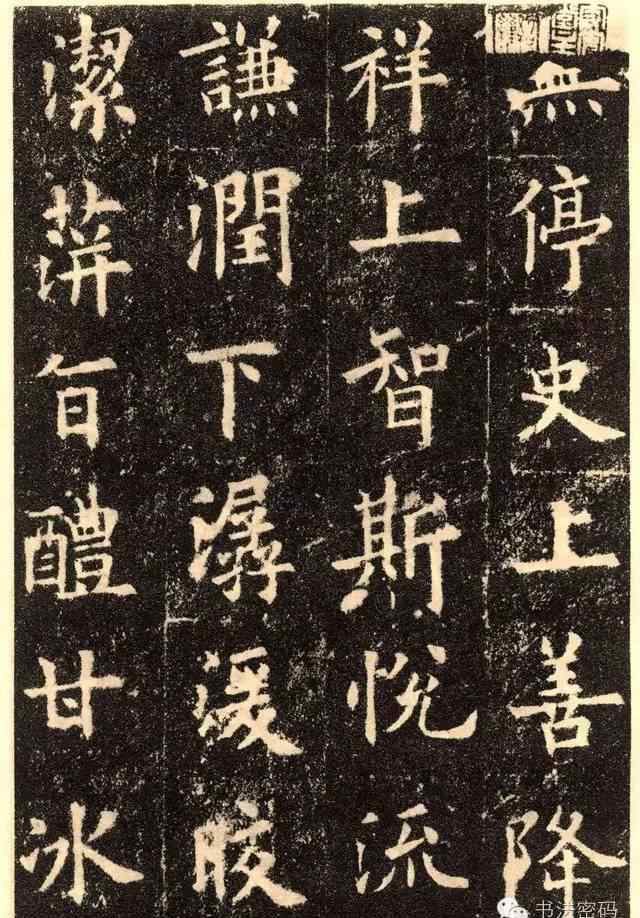 無停史上善降
祥上智斯悅流
謙潤下潺湲皎
潔蓱旨醴甘冰
书法密码